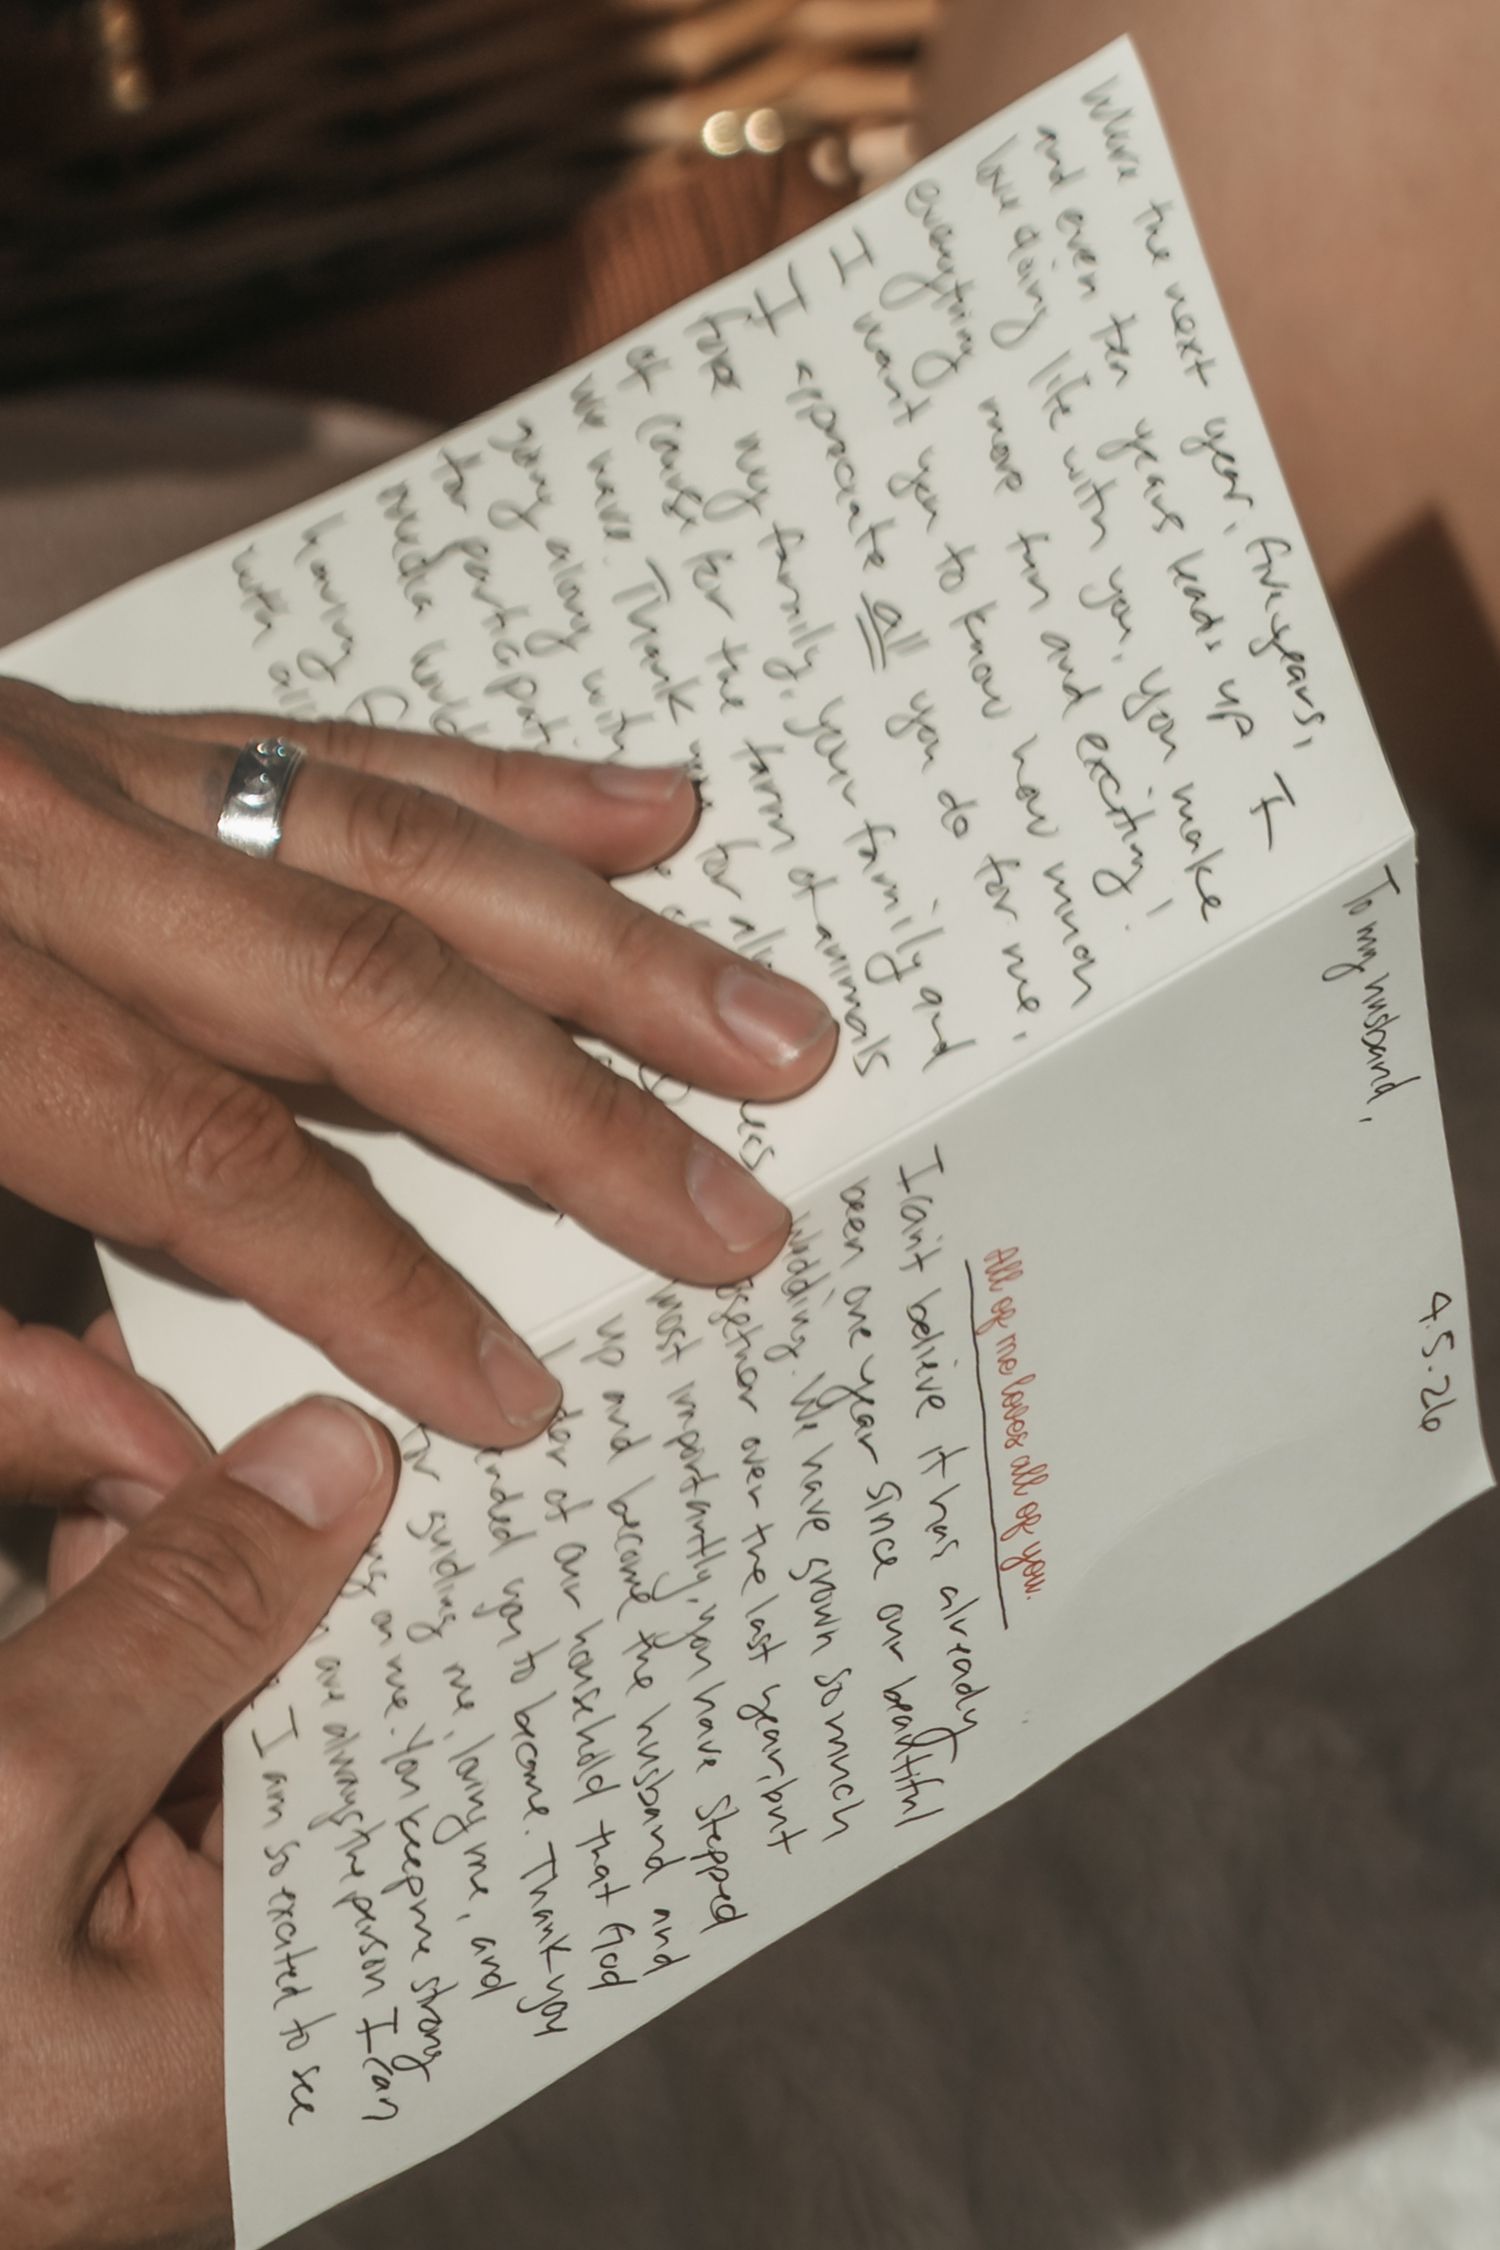 4.5.26
To my husband,
All of me loves all of you.
I can't believe it has already
been one year since our beautiful
wedding. We have grown so much
together over the last year, but
most importantly, you have stepped
up and become the husband and
of our household that God
you to become. Thank you
for guiding me, loving me, and
on me. You keep me strong
are always the person I can
I am so excited to see
where the next year, five years,
and even ten years leads up I
love doing life with you, you make
everything more fun and exciting!
I want you to know how much
I appreciate all you do for me,
for my family, your family and
of course for the farm of animals
we have. Thank you for
going along with
for
media
having
with